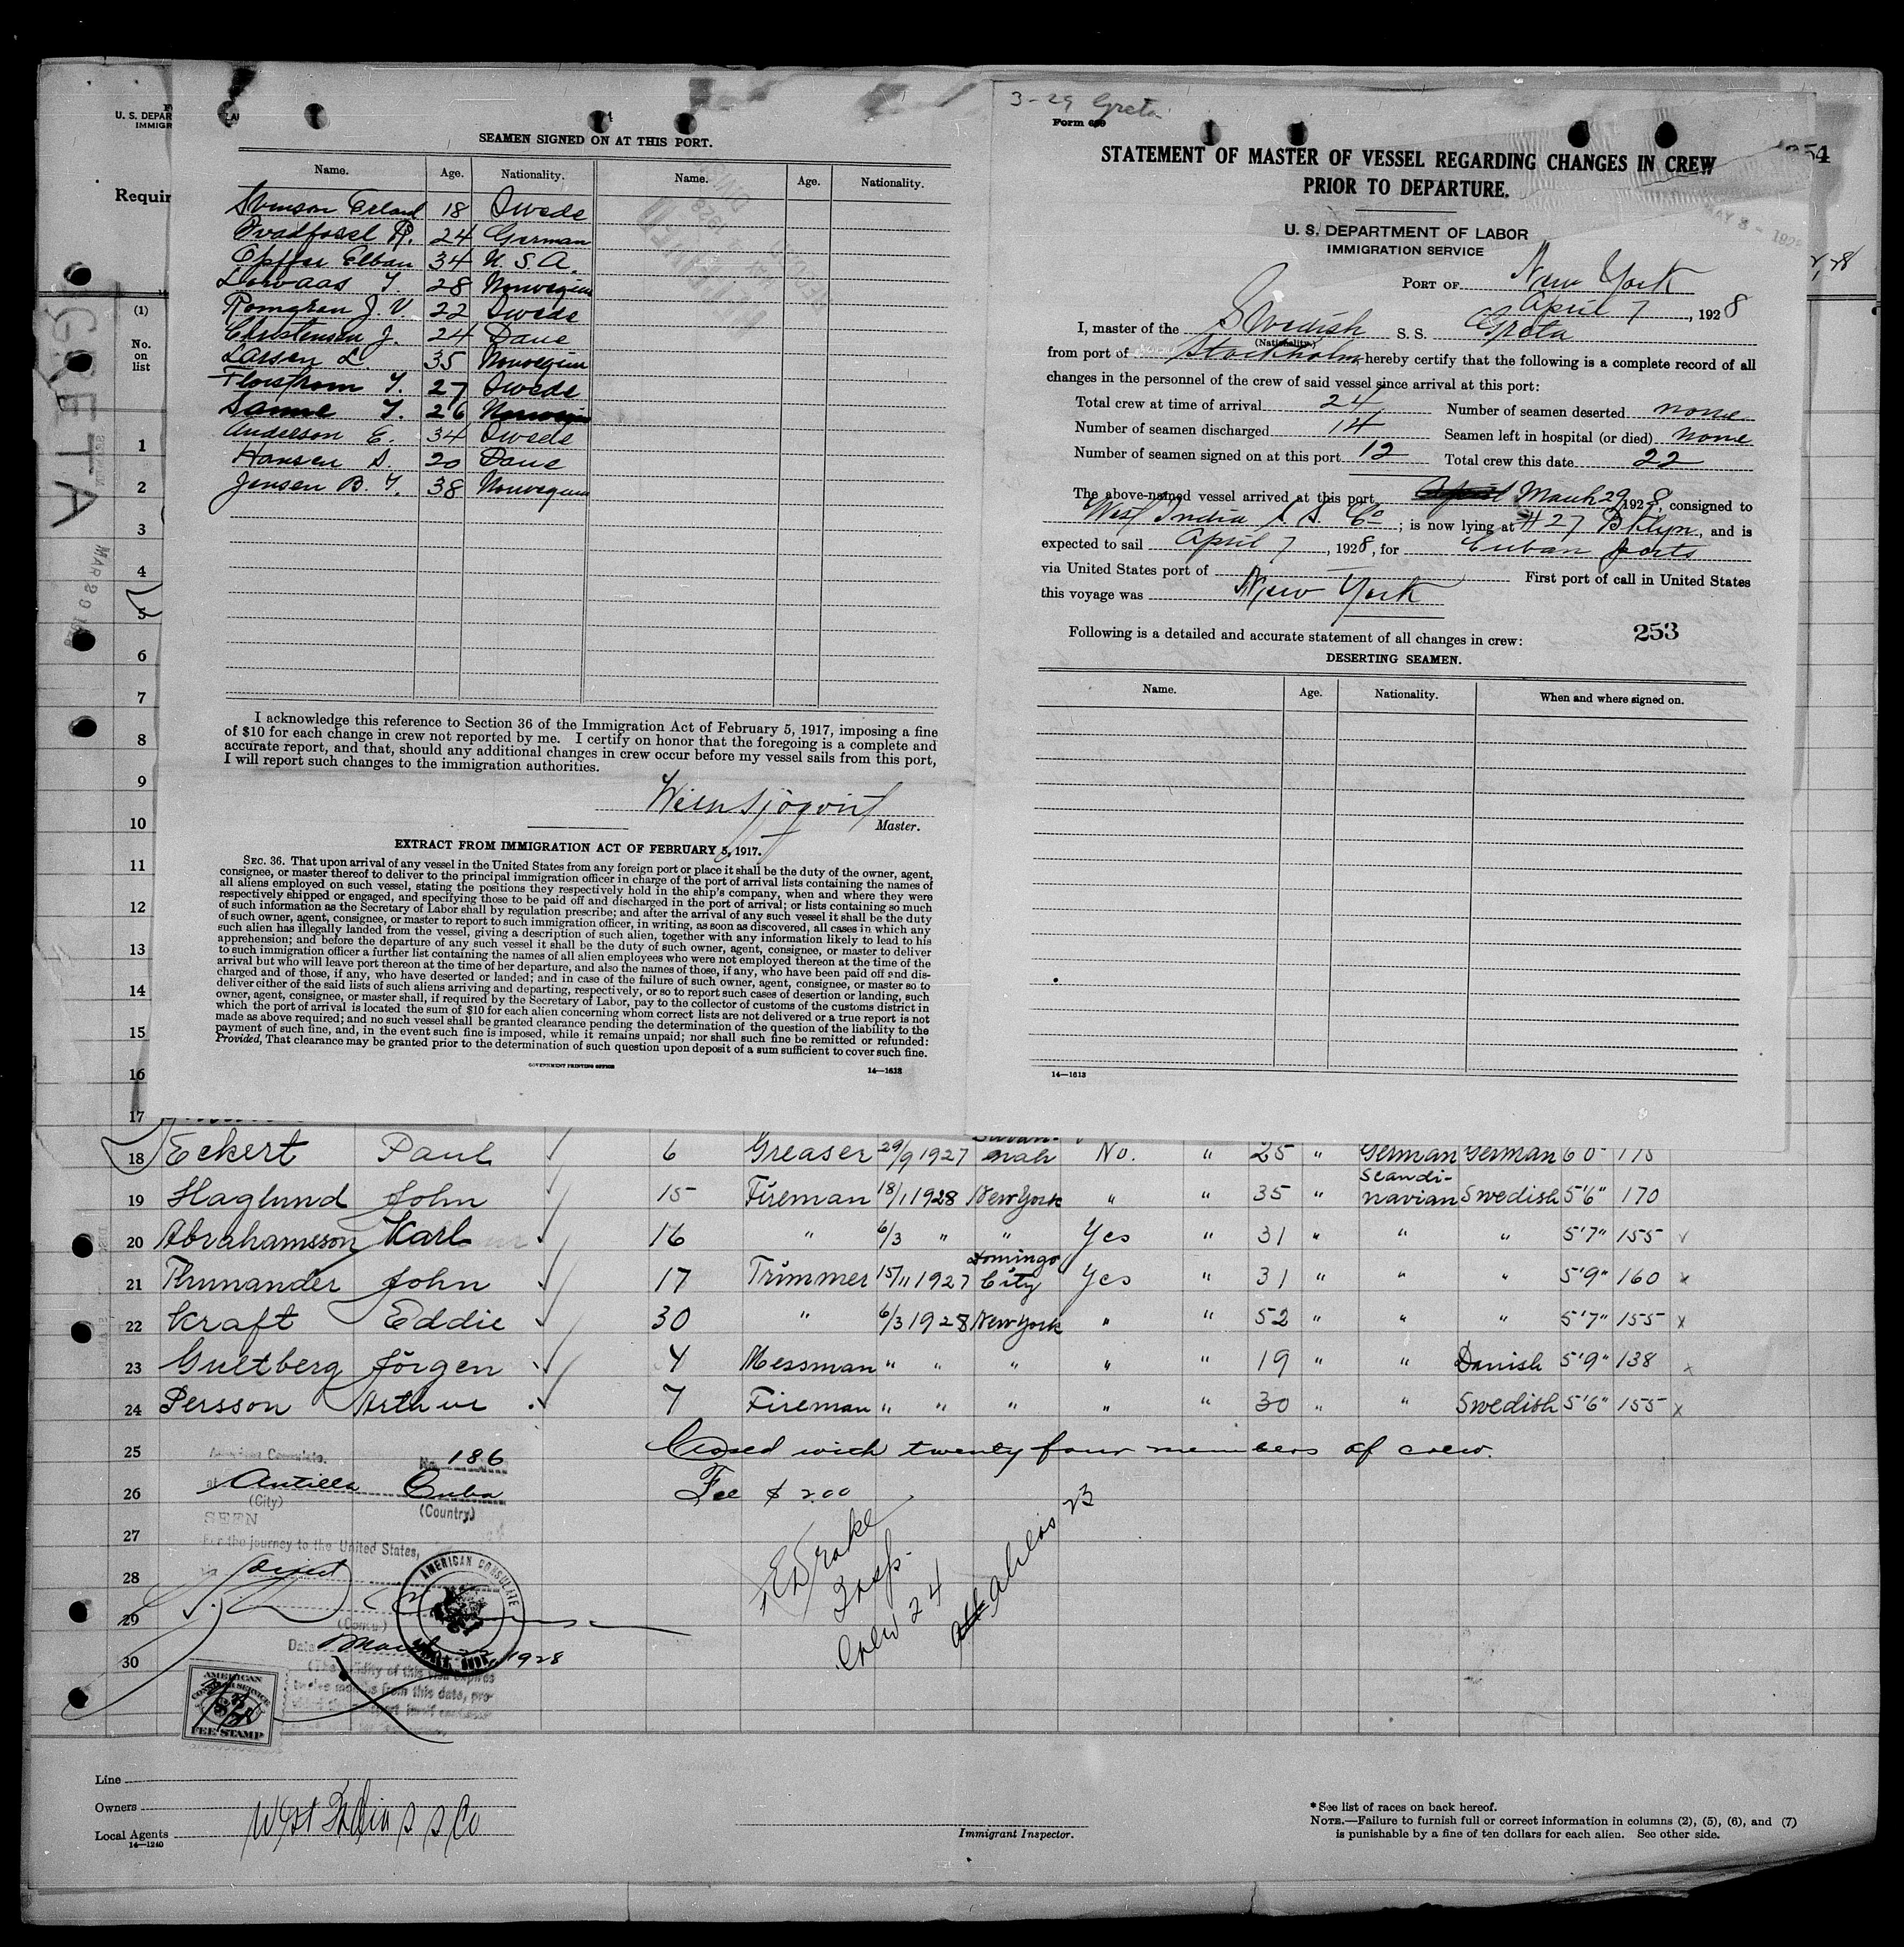 SEAMEN SIGNED ON AT THIS PORT.
Name. Age. Nationality. Name. Age. Nationality.
Svenson Erland 18 Swede
R. 24 German
Elban 34 U. S. A.
28 Norwegian
Romgren J. V 22 Swede
Christensen J. 24 Dane
Larsen L. 35 Norwegian
Florstrom Y. 27 Swede
26
Anderson E. 34 Swede
Hansen S. 20 Dane
Jensen B. Y. 38 Norwegian
I acknowledge this reference to Section 36 of the Immigration Act of February 5, 1917, imposing a fine
of $10 for each change in crew not reported by me. I certify on honor that the foregoing is a complete and
accurate report, and that, should any additional changes in crew occur before my vessel sails from this port,
I will report such changes to the immigration authorities.
Master.
EXTRACT FROM IMMIGRATION ACT OF FEBRUARY 5, 1917.
SEC. 36. That upon arrival of any vessel in the United States from any foreign port or place it shall be the duty of the owner, agent,
consignee, or master thereof to deliver to the principal immigration officer in charge of the port of arrival lists containing the names of
all aliens employed on such vessel, stating the positions they respectively hold in the ship's company, when and where they were
respectively shipped or engaged, and specifying those to be paid off and discharged in the port of arrival; or lists containing so much
of such information as the Secretary of Labor shall by regulation prescribe; and after the arrival of any such vessel it shall be the duty
of such owner, agent, consignee, or master to report to such immigration officer, in writing, as soon as discovered, all cases in which any
such alien has illegally landed from the vessel, giving a description of such alien, together with any information likely to lead to his
apprehension; and before the departure of any such vessel it shall be the duty of such owner, agent, consignee, or master to deliver
to such immigration officer a further list containing the names of all alien employees who were not employed thereon at the time of the
arrival but who will leave port thereon at the time of her departure, and also the names of those, if any, who have been paid off and dis-
charged and of those, if any, who have deserted or landed; and in case of the failure of such owner, agent, consignee, or master so to
deliver either of the said lists of such aliens arriving and departing, respectively, or so to report such cases of desertion or landing, such
owner, agent, consignee, or master shall, if required by the Secretary of Labor, pay to the collector of customs of the customs district in
which the port of arrival is located the sum of $10 for each alien concerning whom correct lists are not delivered or a true report is not
made as above required; and no such vessel shall be granted clearance pending the determination of the question of the liability to the
payment of such fine, and, in the event such fine is imposed, while it remains unpaid; nor shall such fine be remitted or refunded:
Provided, That clearance may be granted prior to the determination of such question upon deposit of a sum sufficient to cover such fine.
GOVERNMENT PRINTING OFFICE 14—1613
3-29 Greta
Form 689
STATEMENT OF MASTER OF VESSEL REGARDING CHANGES IN CREW
PRIOR TO DEPARTURE.
U. S. DEPARTMENT OF LABOR
IMMIGRATION SERVICE
PORT OF New York
April 7, 1928
I, master of the Swedish S. S. Greta
(Nationality.)
from port of Stockholm, hereby certify that the following is a complete record of all
changes in the personnel of the crew of said vessel since arrival at this port:
Total crew at time of arrival 24 Number of seamen deserted none
Number of seamen discharged 14 Seamen left in hospital (or died) none
Number of seamen signed on at this port 12 Total crew this date 22
The above-named vessel arrived at this port March 29 1928, consigned to
West India S. S. Co; is now lying at #27 Bklyn, and is
expected to sail April 7, 1928, for Cuban ports
via United States port of First port of call in United States
this voyage was New York
Following is a detailed and accurate statement of all changes in crew: 253
DESERTING SEAMEN.
Name. Age. Nationality. When and where signed on.
14—1613
U. S. DEPAR
IMMIGR
Requir
254
(1)
No.
on
list
GRETA
MAR 29 1928
1
2
3
4
5
6
7
8
9
10
11
12
13
14
15
16
17
18 Eckert Paul 6 Greaser 29/9 1927 Savan-nah No. " 25 " German German 6 0 175
19 Haglund John 15 Fireman 18/1 1928 New York " " 35 " Scandi-navian Swedish 5'6" 170
20 Abrahamsson Karl 16 " 6/3 " " Yes " 31 " " " 5'7" 155
21 Thunander John 17 Trimmer 15/11 1927 Domingo City Yes " 31 " " " 5'9" 160 x
22 Kraft Eddie 30 " 6/3 1928 New York " " 52 " " " 5'7" 155 x
23 Gultberg Jörgen 4 Messman " " " " " 19 " " Danish 5'9" 138 x
24 Persson Arthur 7 Fireman " " " " " 30 " " Swedish 5'6" 155 x
25 Closed with twenty four members of crew.
26 Fee $ 2.00
27
28
29
30
American Consulate.
No. 186
at Antilla Cuba
(City) (Country)
SEEN
For the journey to the United States,
via direct
(Consul)
Date March 1928
(The validity of this visa expires
twelve months from this date, pro-
AMERICAN CONSULATE
AMERICAN
CONSULAR SERVICE
FEE STAMP
E Drake
Insp.
Crew 24
all aliens 23
Line
Owners
Local Agents West India S S Co
14—1240
Immigrant Inspector.
* See list of races on back hereof.
NOTE.—Failure to furnish full or correct information in columns (2), (5), (6), and (7)
is punishable by a fine of ten dollars for each alien. See other side.